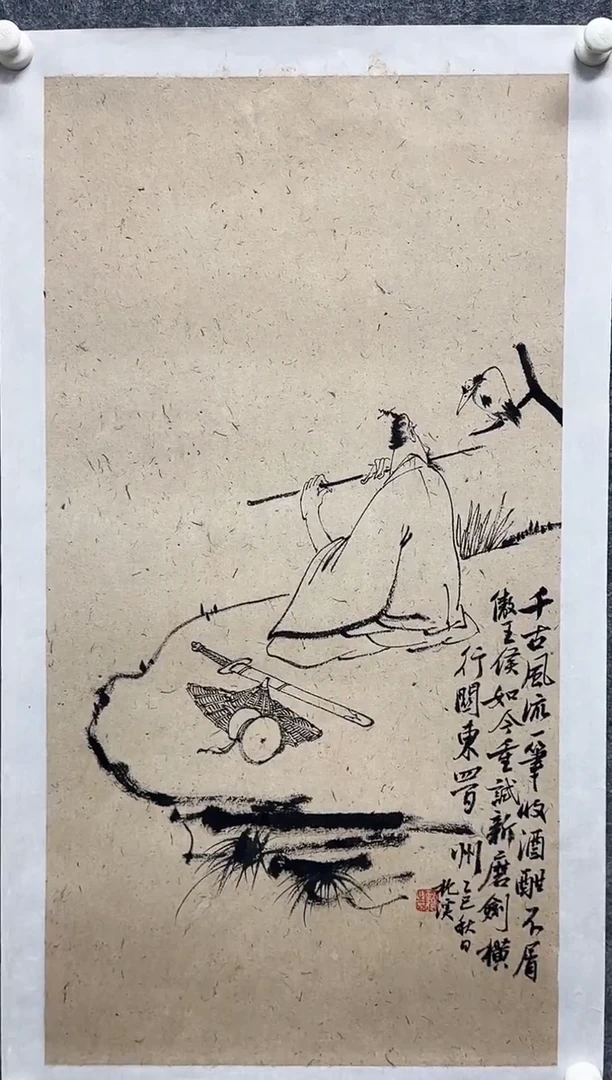 千古風流一筆收酒酣不屑
傲王侯如今重試新磨劍橫
行関東四百州
乙巳秋日